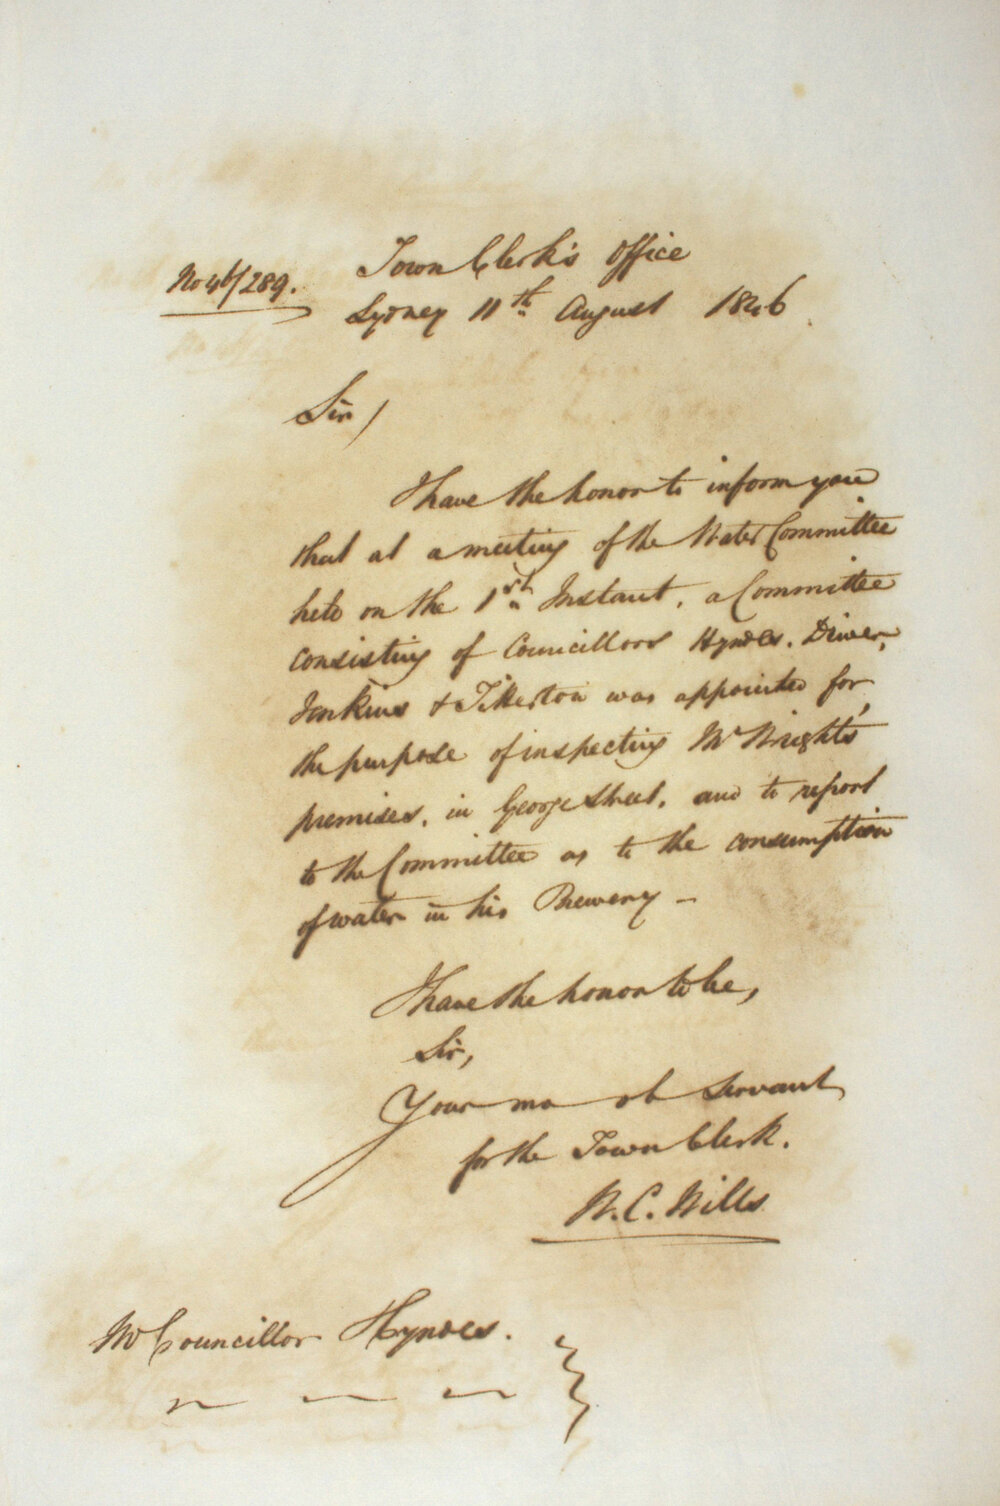 No 46/289.
Town Clerk's Office
Sydney 11th August 1846
Sir/
I have the honor to inform you
that at a meeting of the Water Committee
held on the 1st Instant, a Committee
consisting of Councillors Hyndes, Driver,
Jenkins & Titterton was appointed for
the purpose of inspecting Mr Wright's
premises, in George Street, and to report
to the Committee as to the consumption
of water in his Brewery –
I have the honor to be,
Sir,
Your mo ob Servant
for the Town Clerk.
W. C. Wills
Mr Councillor Hyndes.